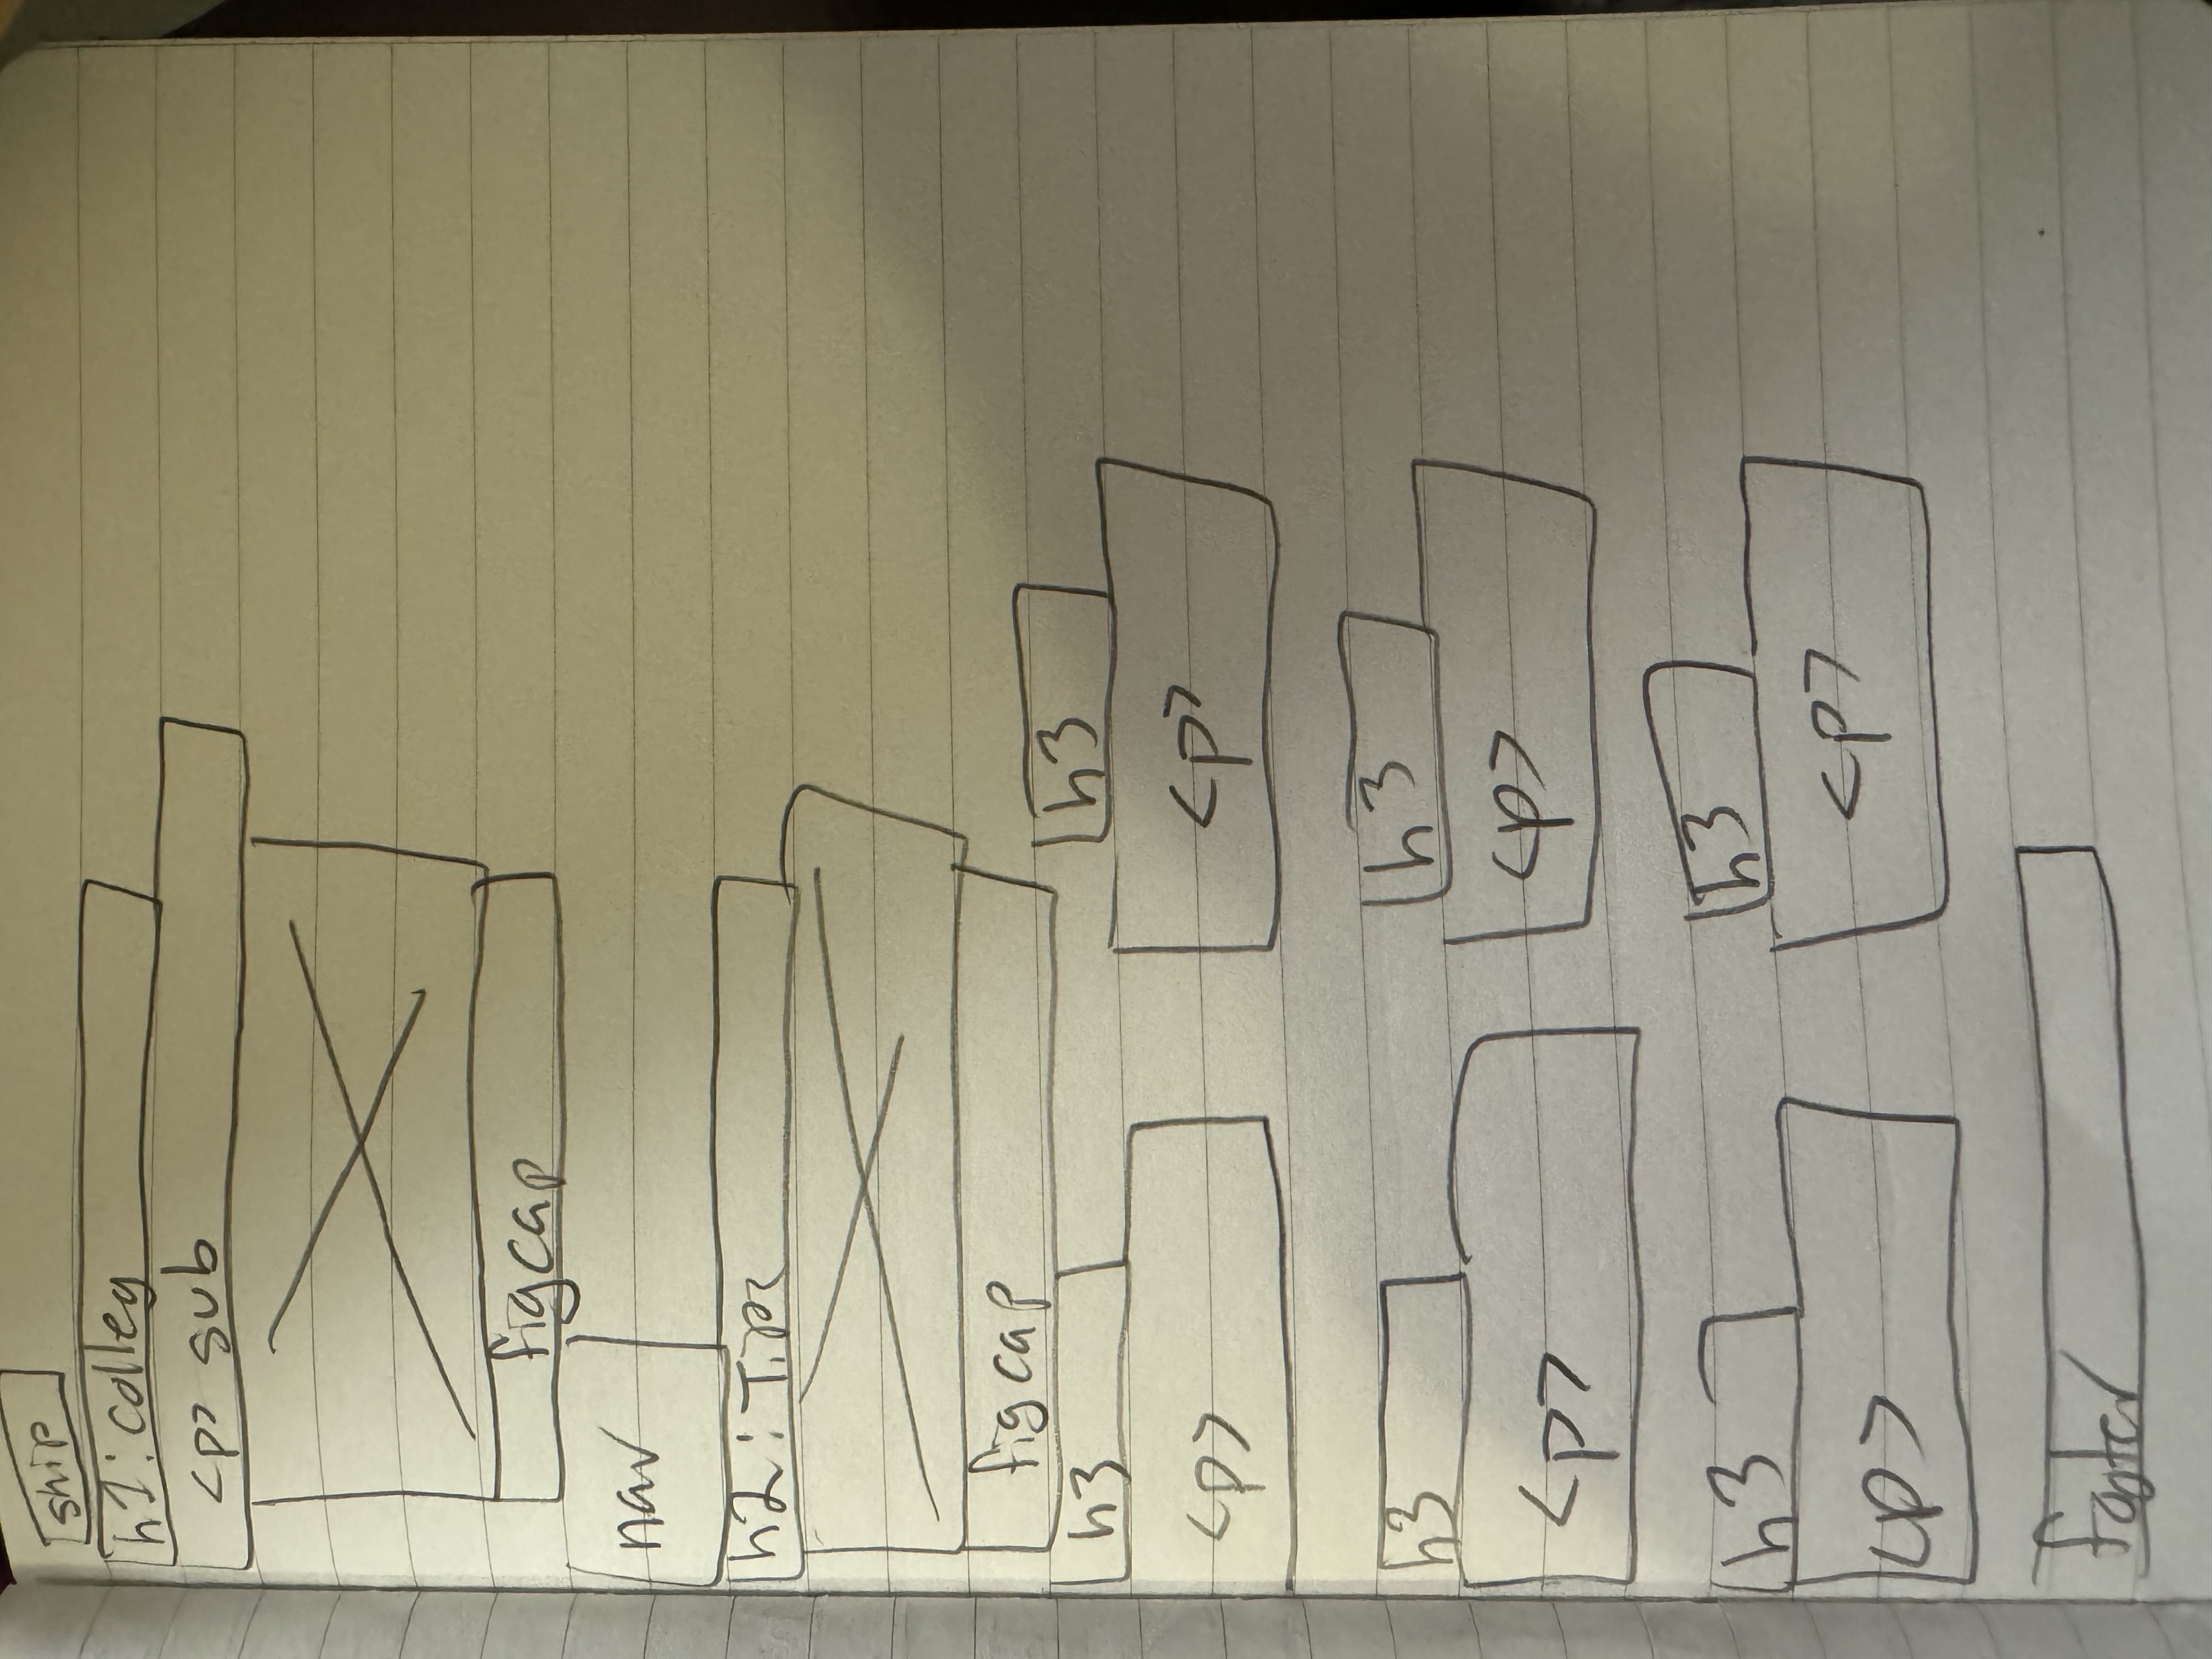 ship
h1: colleg
<p> sub
figcap
nav
h2: Tips
figcap
h3 h3
<p> <p>
h3 h3
<p> <p>
h3 h3
<p> <p>
footer